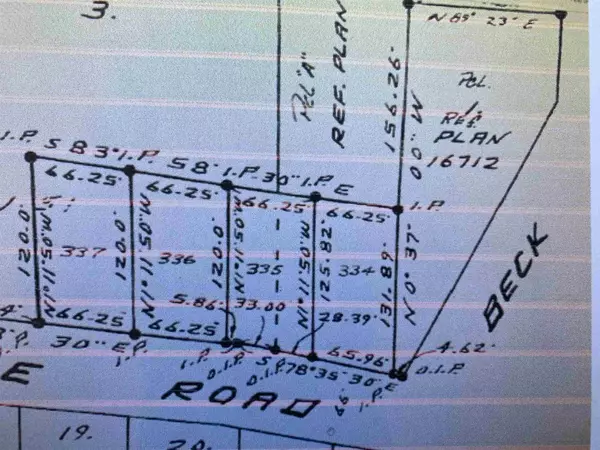 3.
N 89° 23' E
Pcl "A"
REF. PLAN
156.26'
00" W
Pcl.
1
REF.
PLAN
16712
I.P. S 83° I.P. 58' I.P. 30" I.P. E
66.25' 66.25' 66.25' 66.25' I.P.
120.0'
N 1° 11' 50" W
337
120.0'
N 1° 11' 50" W
336
120.0'
N 1° 11' 50" W
335
N 1° 11' 50" W
125.82'
334
131.89'
N 0° 37'
BECK
5.86' 33.00
28.39'
66.25' 66.25' 65.96' 4.62'
30" E I.P. I.P. O.I.P. S O.I.P. 78° 35' 30" E I.P. O.I.P.
66'
E ROAD
19. 20.